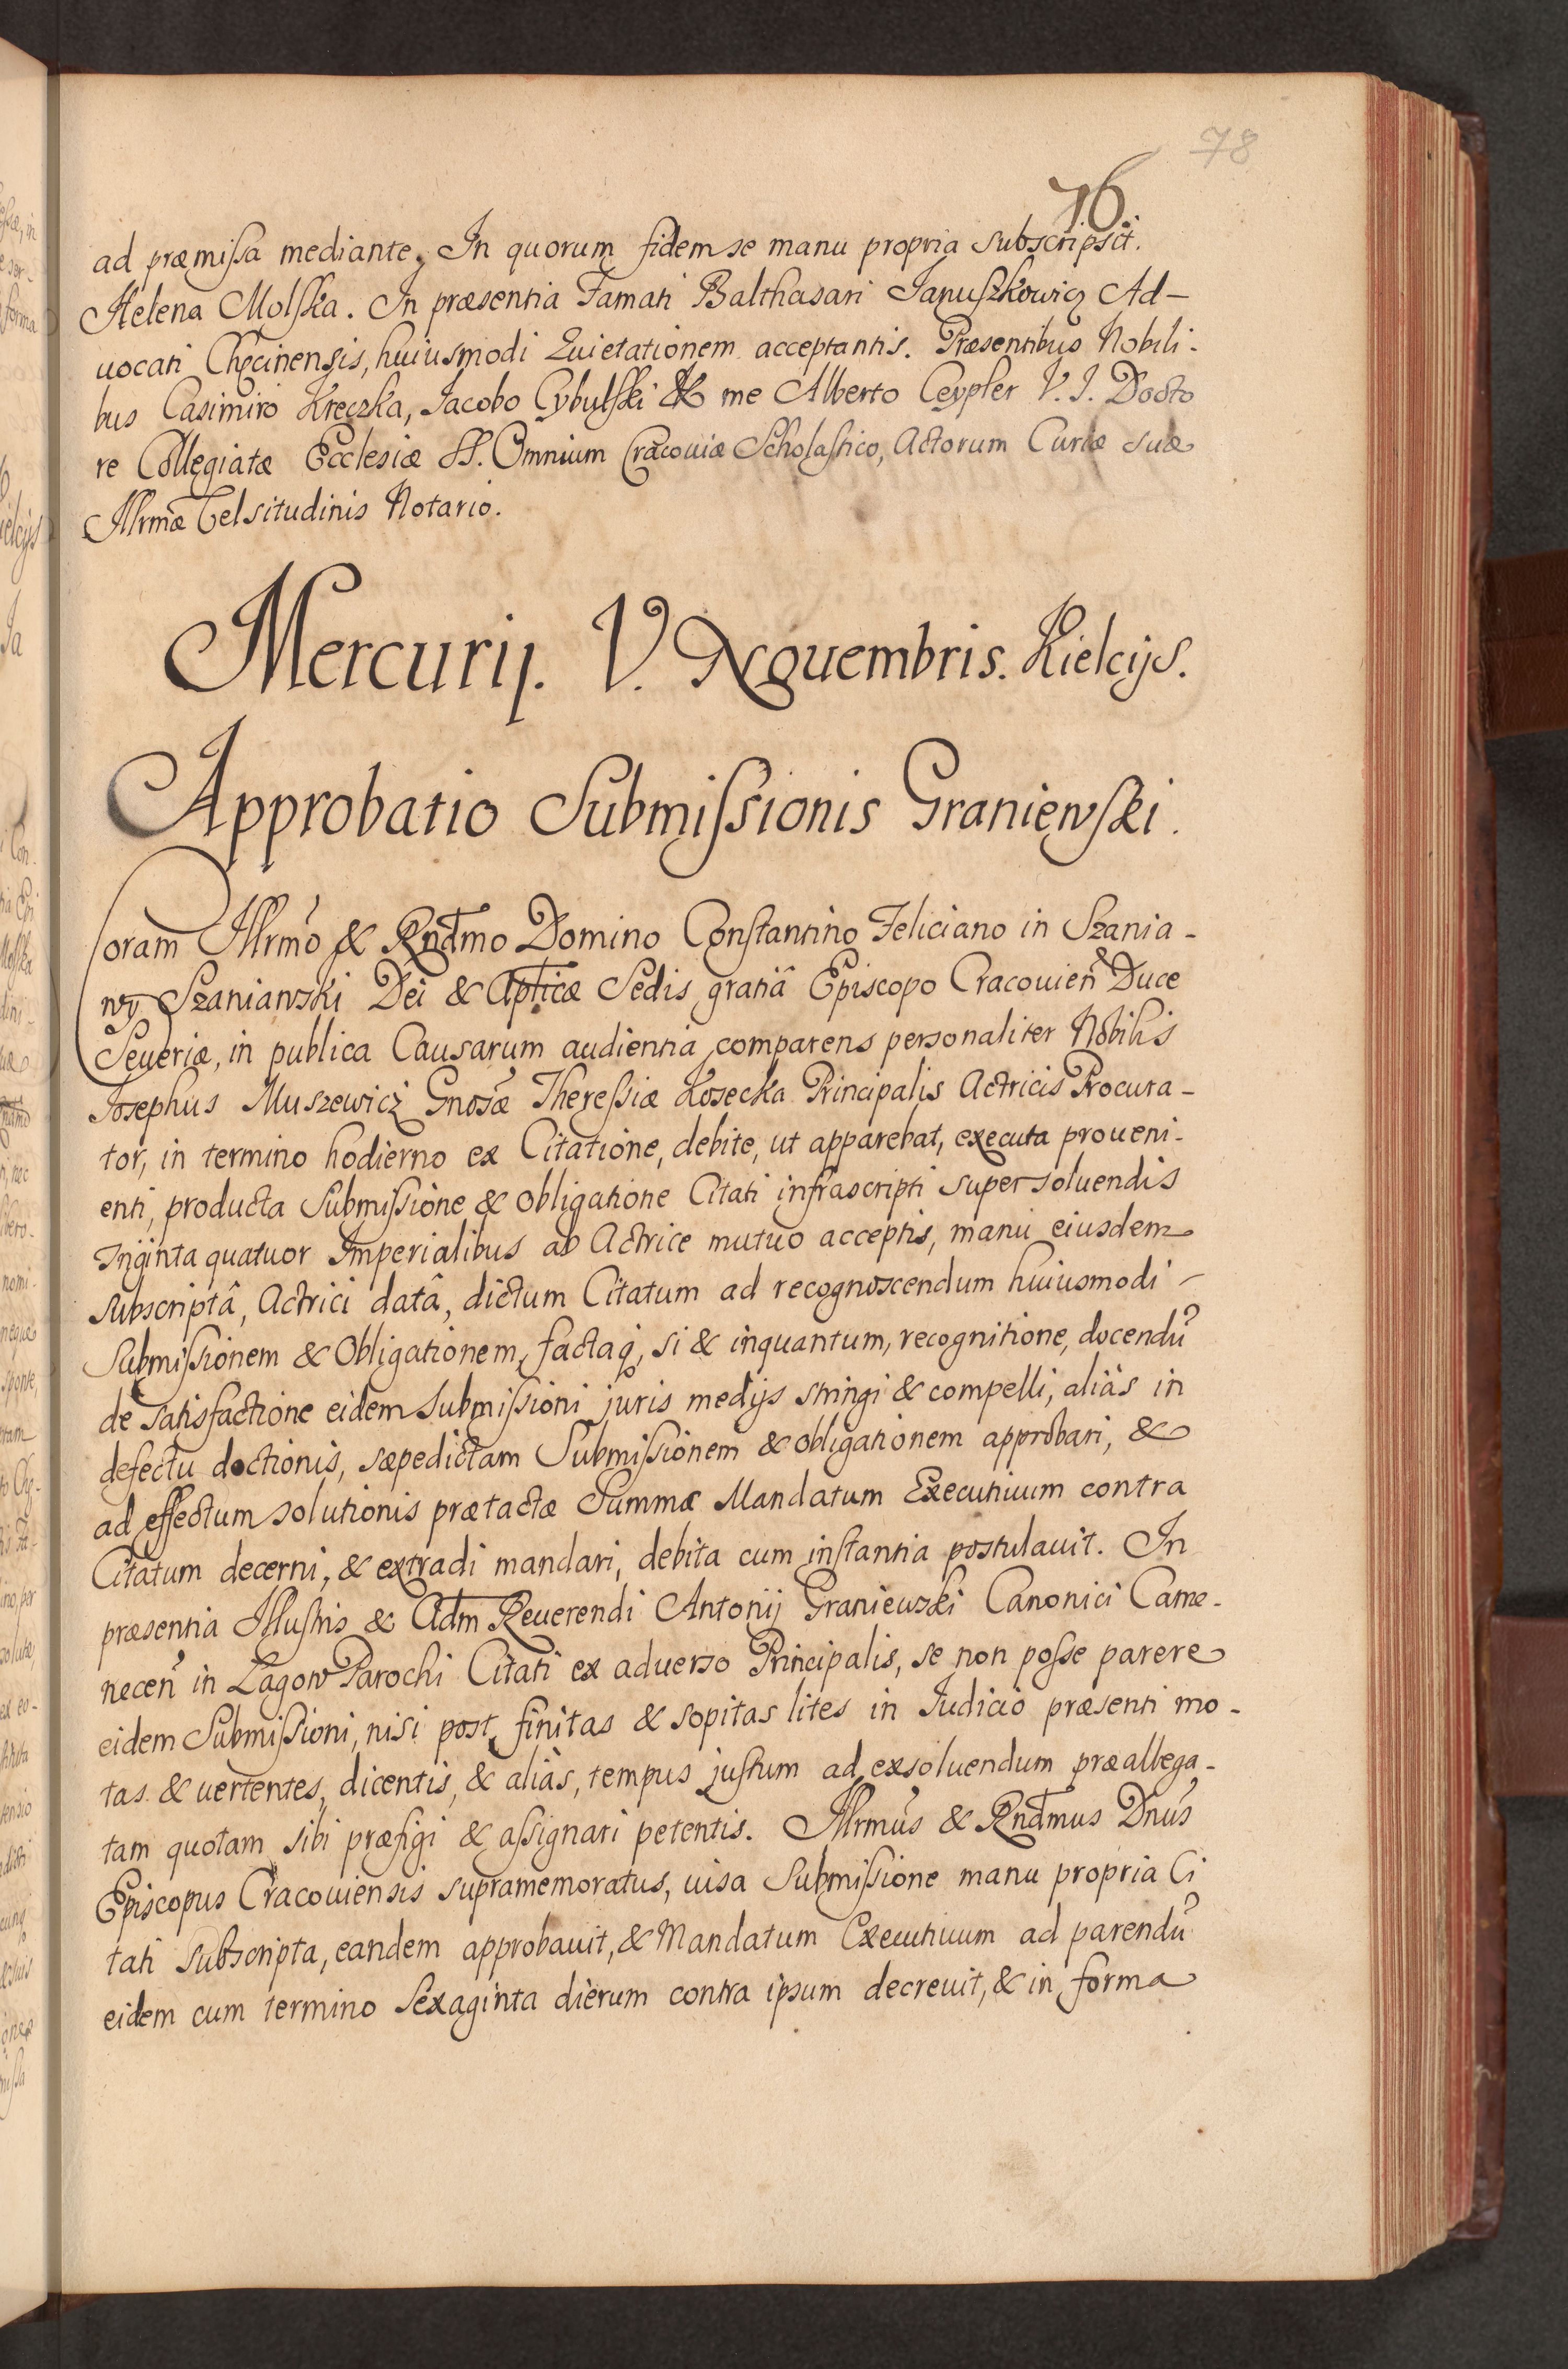 78
76.
ad præmissa mediante, In quorum fidem se manu propria subscripsit.
Helena Molska. In præsentia Famati Balthasari Januszkowicz Ad-
uocati Chęcinensis, huiusmodi Quietationem acceptantis. Præsentibus Nobili-
bus Casimiro Kręczka, Jacobo Cybulski & me Alberto Ceypler V. J. Docto
re Collegiatæ Ecclesiæ SS. Omnium Cracouiæ Scholastico, Actorum Curiæ suæ
Illrmæ Celsitudinis Notario.
Mercurij. V. Nouembris. Kielcijs.
Approbatio Submissionis Graniewski.
Coram Illrmo & Rndmo Domino Constantino Feliciano in Szania-
wy Szaniawski Dei & Aplicæ Sedis gratiâ Episcopo Cracouien Duce
Seueriæ, in publica Causarum audientia comparens personaliter Nobilis
Josephus Muszewicz Gnosæ Theressiæ Kosecka Principalis Actricis Procura-
tor, in termino hodierno ex Citatione, debite, ut apparebat, executa proueni-
enti, producta Submissione & obligatione Citati infrascripti super soluendis
Triginta quatuor Imperialibus ab Actrice mutuo acceptis, manu eiusdem
subscriptâ, Actrici datâ, dictum Citatum ad recognoscendum huiusmodi
Submissionem & Obligationem, factaq, si & inquantum, recognitione, docendu
de satisfactione eidem Submissioni juris medijs stringi & compelli, aliàs in
defectu doctionis, sæpedictam Submissionem & obligationem approbari, &
ad effectum solutionis prætactæ Summæ Mandatum Executiuum contra
Citatum decerni, & extradi mandari, debita cum instantia postulauit. In
præsentia Illustris & Adm Reuerendi Antonij Graniewski Canonici Came-
necen in Lagow Parochi Citati ex aduerso Principalis, se non posse parere
eidem Submissioni, nisi post finitas & sopitas lites in Judicio præsenti mo-
tas & uertentes, dicentis, & aliàs, tempus justum ad exsoluendum præallega-
tam quotam sibi præfigi & assignari petentis. Illrmus & Rndmus Dnus
Episcopus Cracouiensis supramemoratus, uisa Submissione manu propria Ci
tati subscripta, eandem approbauit, & Mandatum Executiuum ad parendu
eidem cum termino Sexaginta dierum contra ipsum decreuit, & in forma